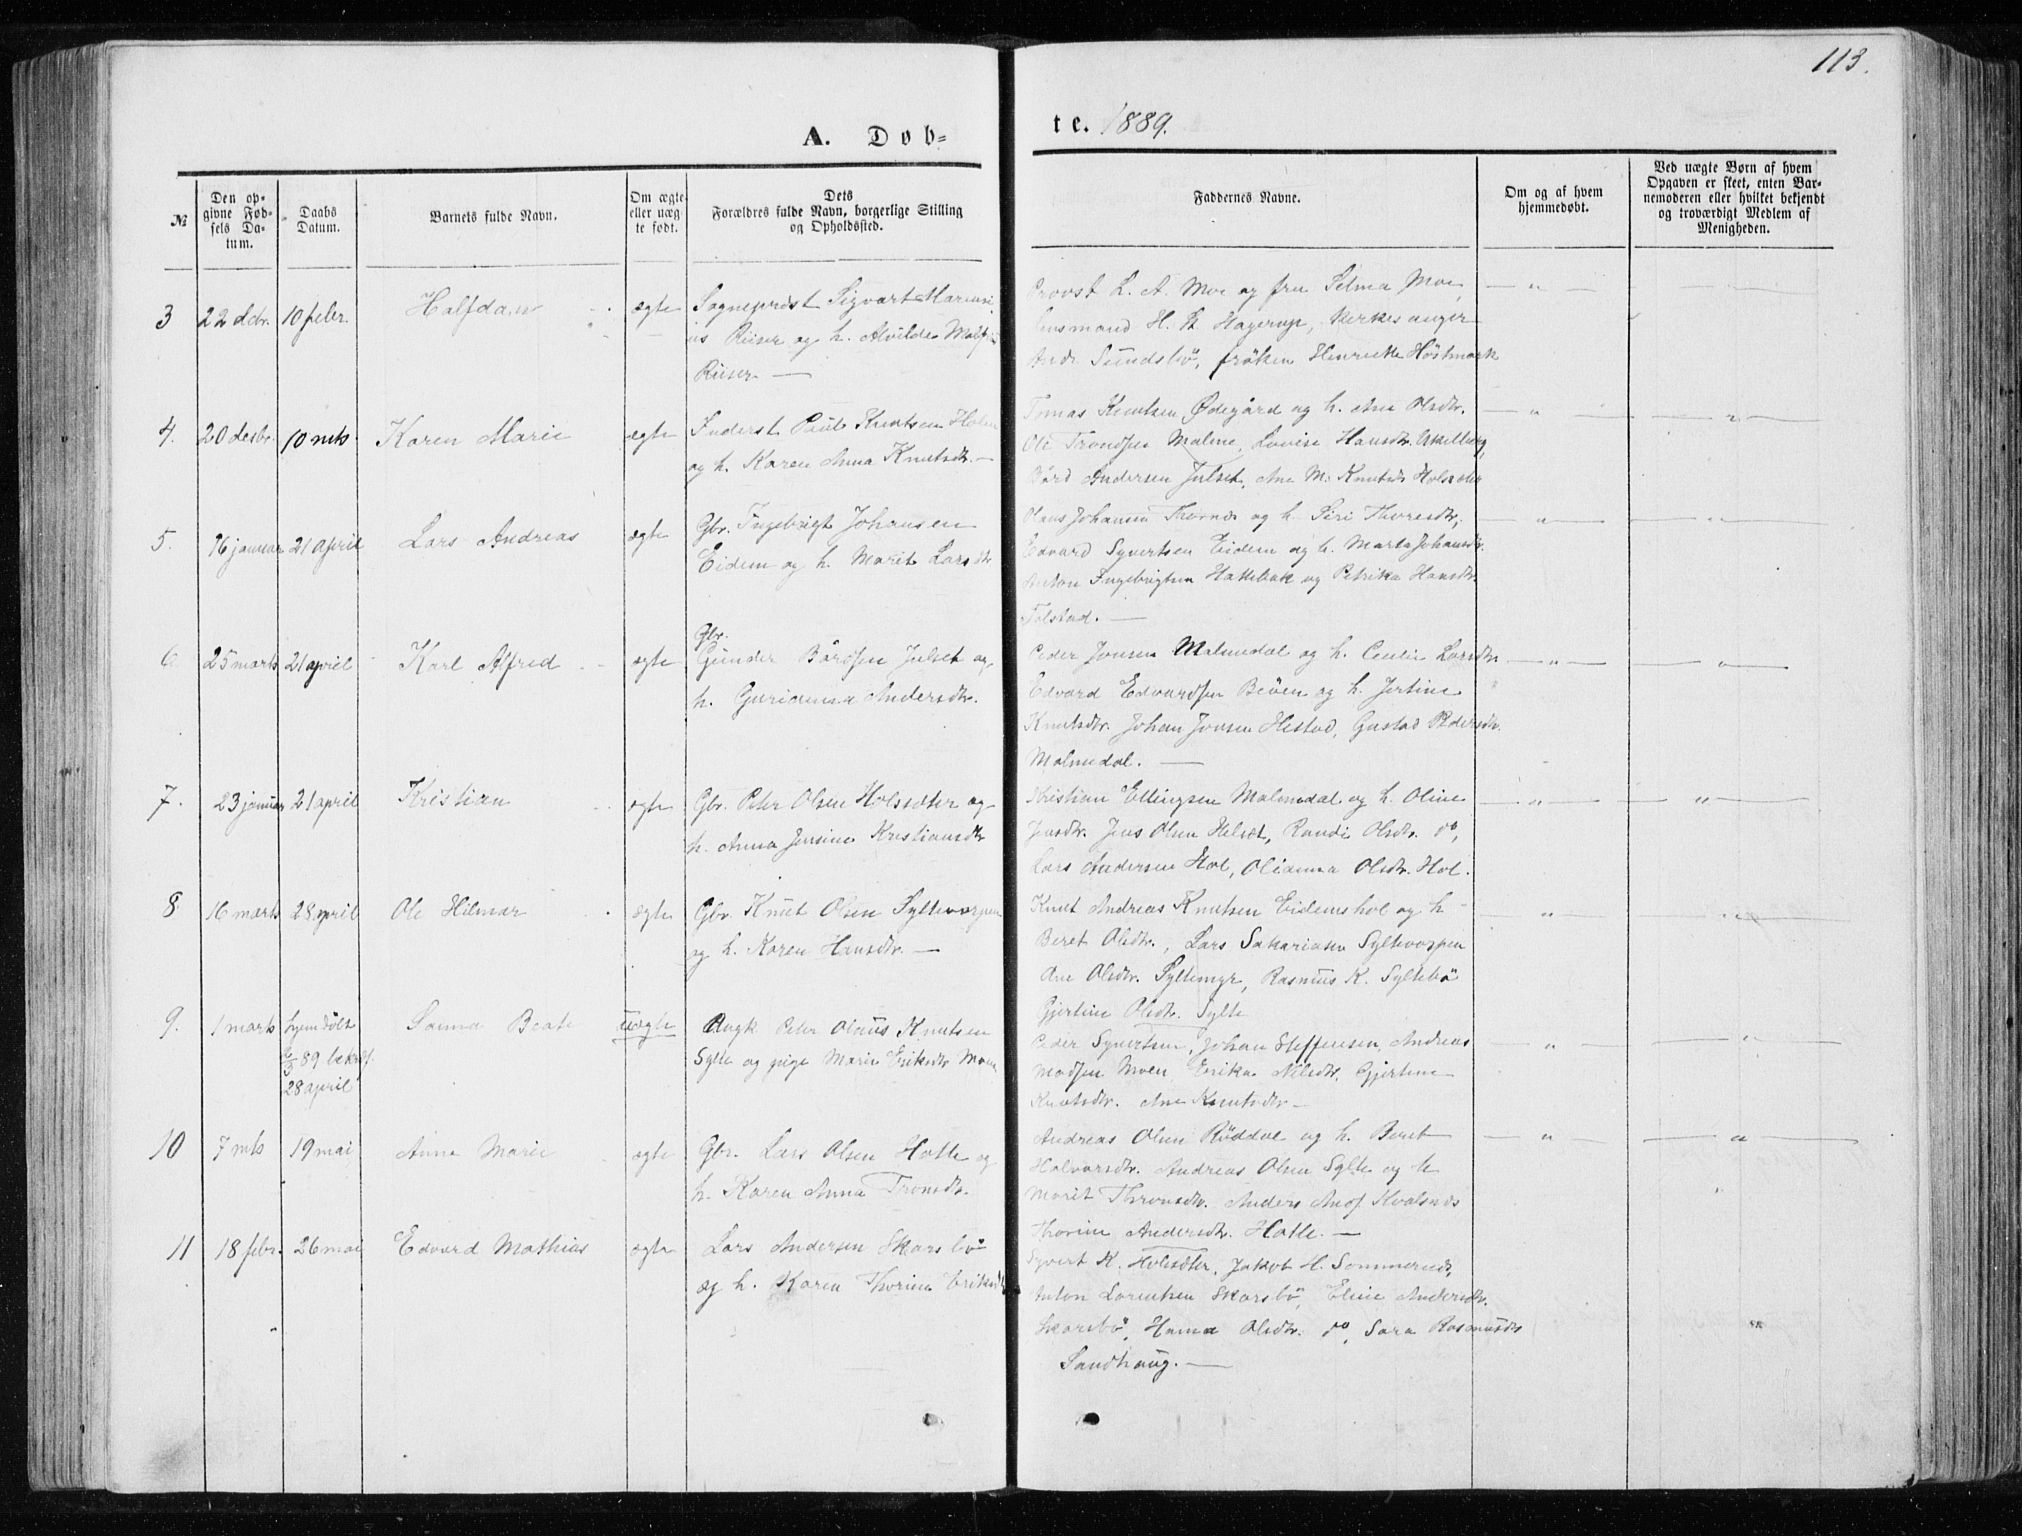 113.
A. Døb-
te. 1889.
№
Den op-
givne Fød-
sels Da-
tum.
Daabs
Datum.
Barnets fulde Navn.
Om ægte
eller uæg-
te født.
Dets
Forældres fulde Navn, borgerlige Stilling
og Opholdssted.
Faddernes Navne.
Om og af hvem
hjemmedøbt.
Ved uægte Børn af hvem
Opgaven er skeet, enten Bar-
nemoderen eller hvilket bekjendt
og troværdigt Medlem af
Menigheden.
3 22 dcbr. 10 febr. Halfdan ægte
Sogneprest Sigvart Mariusi
us Riiser og h. Alvilde
Riiser —
Provst L. A. Moe og fru Selma Moe,
lensmand H. St Hagerup, kirkesanger
Andr Sundsbö, fröken Henriette Höstmark
— " —
4. 20 desbr. 10 mts. Karen Marie ægte
Inderst Paul Knutsen Holen
og h. Karen Anna Knutsdtr. —
Tomas Knutsen Ødegård og h. Ane Olsdtr.
Ole Trondsen Malme, Lovise Hansdtr.
Bård Andersen Julset, Ane M. Knutsdr
— " — — " —
5. 16 januar 21 april Lars Andreas ægte
Gbr. Ingebrigt Johansen
Eidem og h. Marit Larsdtr
Olaus Johansen Thornes og h. Siri Thoresdtr,
Edvard Syvertsen Eidem og h. Marta Johansdtr.
Anton Ingebrigtsen Hattebak og Petrika Hansdtr.
Tolstad. —
— " — — " —
6 25 marts 21 april Karl Alfred ægte
Gbr.
Gunder Bårdsen Julset og
h. Gurianna Andersdtr.
Peder Jonsen Malmedal og h. Cecilie Larsdtr.
Edvard Edvardsen Beöen og h. Jertine
Knutsdtr. Johan Jonsen Hestad, Gustad Pedersdtr.
Malmedal. —
— " — — " —
7. 23 januar 21 april Kristian ægte
Gbr. Peter Olsen Holssæter og
h. Anna Jensine Kristiansdtr
Kristian Ellingsen Malmedal og h. Oline
Jensdtr. Jens Olsen Helset, Randi Olsdtr. do,
Lars Andersen Hol, Olianna Olsdtr. Hol.
— " — — " —
8 16 marts 28 april Ole Hilmar ægte
Gbr. Knut Olsen Syltevorpen
og h. Karen Hansdtr. —
Knut Andreas Knutsen Eidemshol og h
Beret Olsdtr., Lars Sakariasen Syltevorpen
Ane Olsdtr. Syltemyr, Rasmus K. Syltebö
Gjertine Olsdtr. Sylte
— " — — " —
9. 1 marts hjemdöbt Sanna Beate uægte
89 bekræf.
28 april
Ungk. Peter Olaus Knutsen
Sylte og pige Marie Eriksdtr Moen
Peder Syvertsen, Johan Steffensen, Andreas
Madsen Moen, Erika Nilsdtr, Gjertine
Knutsdtr. Ane Knutsdtr —
— " — — " —
10 7 mts 19 mai Anna Marie ægte
Gbr. Lars Olsen Hatle og
h. Karen Anna Tronsdtr.
Andreas Olsen Röddal og h. Beret
Halvorsdtr. Andreas Olsen Sylte og h
Marit Thronsdtr. Anders Andr. Kvalsnes
Thorine Andersdtr. Hatle. —
— " — — " —
11 18 febr. 26 mai Edvard Mathias ægte
Lars Andersen Skarsbö
og h. Karen Thorine Eriksdtr
Syvert K. Holesæter, Jakob H. Sommernes,
Anton Lorentsen Skarsbö, Eline Andersdtr.
Skarsbö, Hanna Olsdtr. do, Sara Rasmusdtr
Sandhaug. —